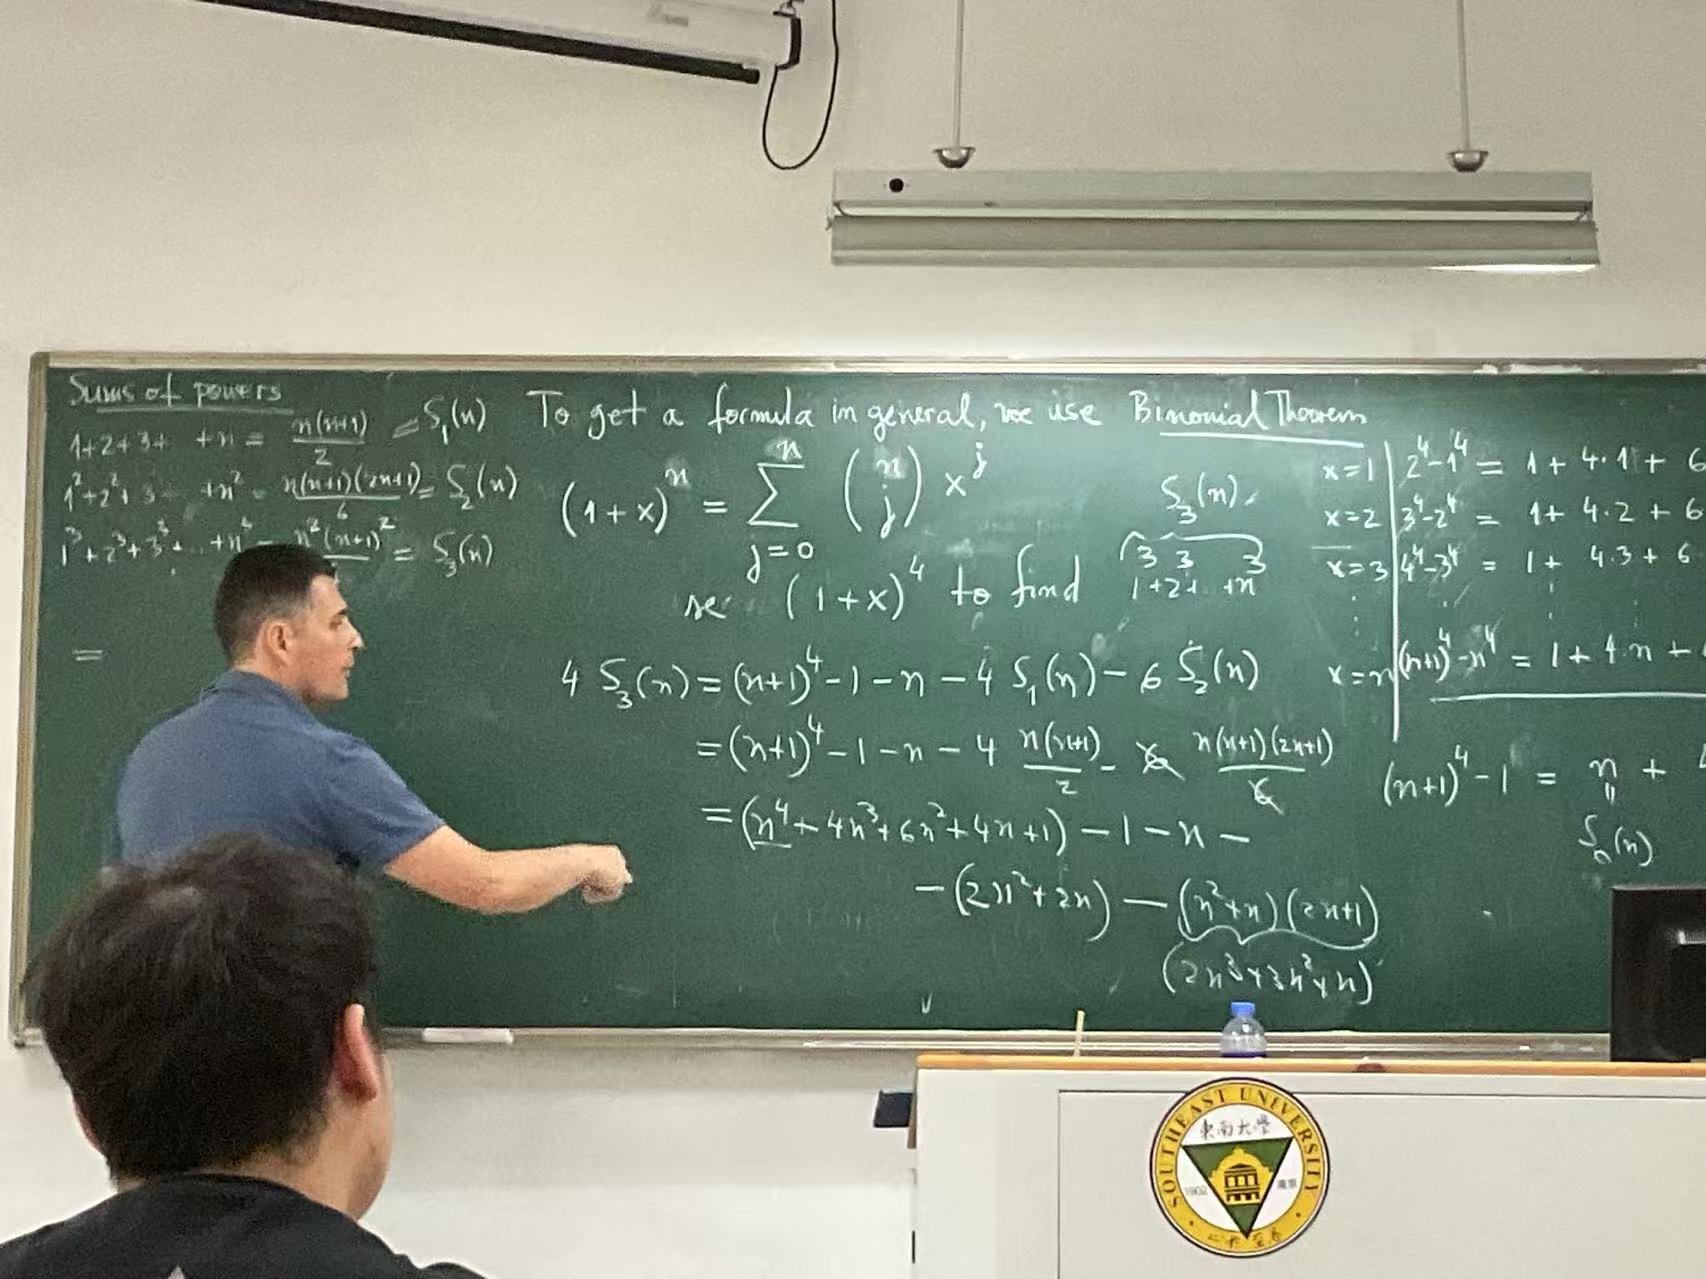 Sums of powers
1+2+3+ +n = n(n+1)/2 = S₁(n)
1²+2²+3 +n² = n(n+1)(2n+1)/6 = S₂(n)
1³+2³+3³+...+n = n²(n+1)² = S₃(n)
=
To get a formula in general, we use Binomial Theorem
(1+x)ⁿ = ∑ j=0 n (n j) xʲ
S₃(n)
(1+x)⁴ to find 1³+2³+ +n³
4 S₃(n) = (n+1)⁴ - 1 - n - 4 S₁(n) - 6 S₂(n)
= (n+1)⁴ - 1 - n - 4 n(n+1)/2 - 6 n(n+1)(2n+1)/6
= (n⁴ + 4n³ + 6n² + 4n + 1) - 1 - n -
- (2n² + 2n) - (n²+n)(2n+1)
(2n³+3n²+n)
x=1 2⁴-1⁴ = 1 + 4·1 + 6
x=2 3⁴-2⁴ = 1 + 4·2 + 6
x=3 4⁴-3⁴ = 1 + 4·3 + 6
x=n (n+1)⁴-n⁴ = 1 + 4·n +
(n+1)⁴ - 1 = n +
S₀(n)
SOUTHEAST UNIVERSITY
東南大學
1902 南京